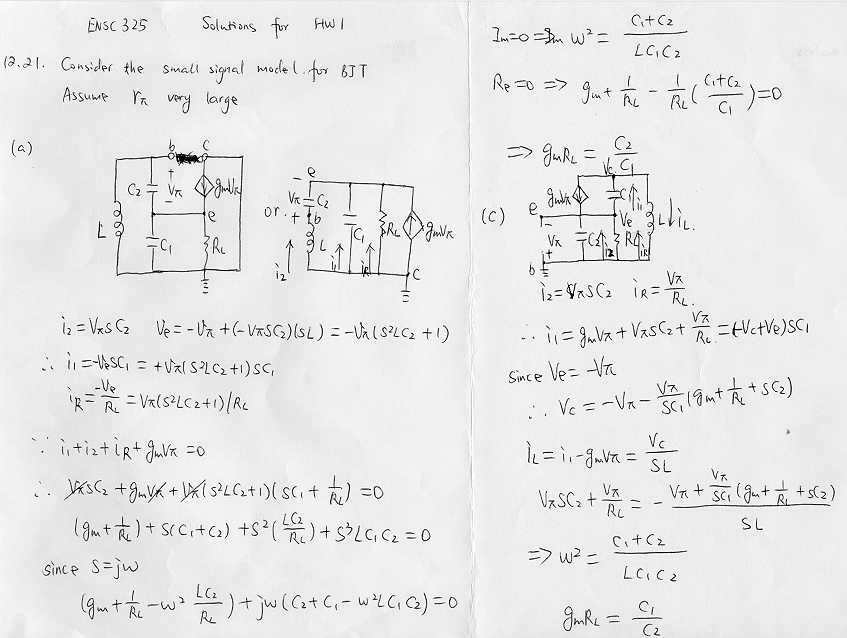 ENSC 325 Solutions for HW1
12.21. Consider the small signal model for BJT
Assume rπ very large
(a)
b C
C2 + Vπ − gmVπ
e
L C1 RL
or.
e
− Vπ + C2
b
L C1 RL gmVπ
i2 i1 iR
C
i2 = VπSC2 Ve = −Vπ + (−VπSC2)(SL) = −Vπ(S²LC2 + 1)
∴ i1 = −VeSC1 = +Vπ(S²LC2+1)SC1
iR = −Ve/RL = Vπ(S²LC2+1)/RL
∵ i1 + i2 + iR + gmVπ = 0
∴ VπSC2 + gmVπ + Vπ(S²LC2+1)(SC1 + 1/RL) = 0
(gm + 1/RL) + S(C1+C2) + S²(LC2/RL) + S³LC1C2 = 0
since S=jw
(gm + 1/RL − w² LC2/RL) + jw(C2 + C1 − w²LC1C2) = 0
Im=0 ⇒ w² = (C1+C2)/(LC1C2)
Re=0 ⇒ gm + 1/RL − 1/RL((C1+C2)/C1) = 0
⇒ gmRL = C2/C1
(C)
Vc
gmVπ C1 i1 L iL
e Ve
− Vπ + C2 i2 RL iR
b
i2 = VπSC2 iR = Vπ/RL
∴ i1 = gmVπ + VπSC2 + Vπ/RL = (−Vc+Ve)SC1
since Ve = −Vπ
∴ Vc = −Vπ − Vπ/SC1(gm + 1/RL + SC2)
iL = i1 − gmVπ = Vc/SL
VπSC2 + Vπ/RL = −(Vπ + Vπ/SC1(gm + 1/RL + SC2))/SL
⇒ w² = (C1+C2)/(LC1C2)
gmRL = C1/C2